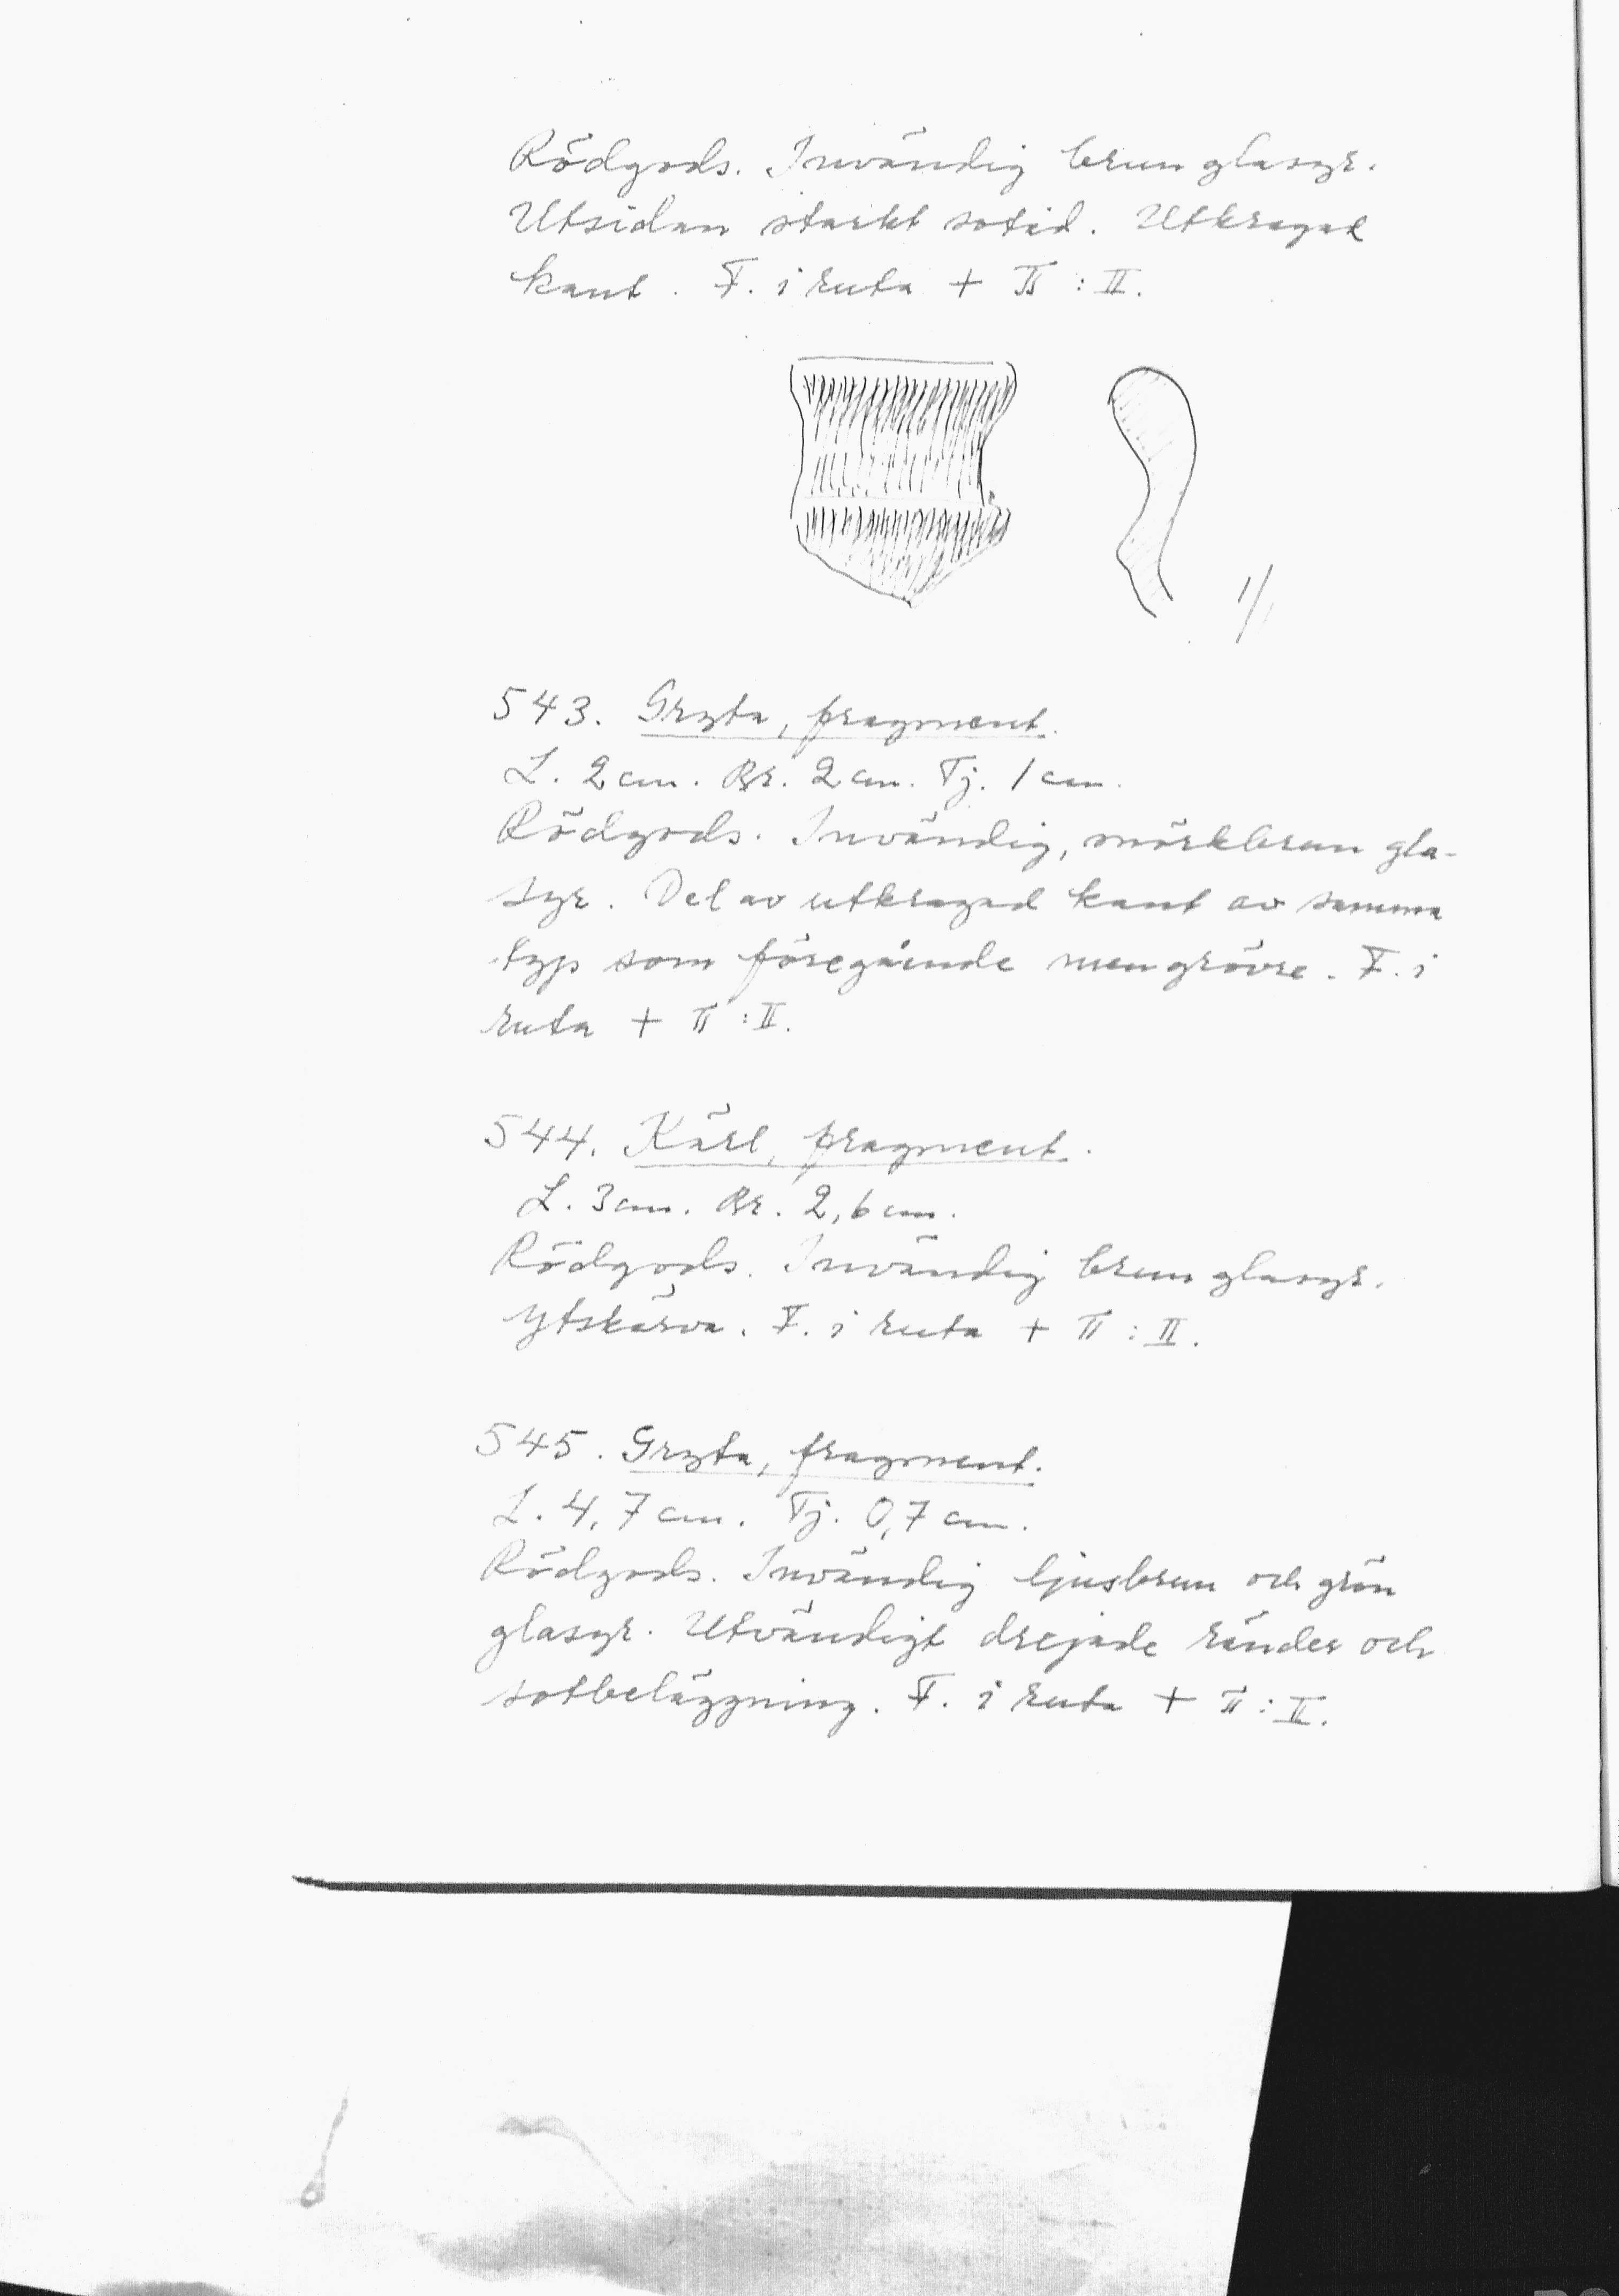 Rödgods. Invändig brun glasyr.
Utsidan starkt sotad. Utkragad
kant. F. i ruta + II : II.
1/1
543. Gryta, fragment.
L. 2 cm. Br. 2 cm. Tj. 1 cm.
Rödgods. Invändig, mörkbrun gla-
syr. Del av utkragad kant av samma
typ som föregående men grövre. F. i
ruta + II : II.
544. Kärl, fragment.
L. 3 cm. Br. 2,6 cm.
Rödgods. Invändig brun glasyr.
Ytskärva. F. i ruta + II : II.
545. Gryta, fragment.
L. 4,7 cm. Tj. 0,7 cm.
Rödgods. Invändig ljusbrun och grön
glasyr. Utvändigt drejade ränder och
sotbeläggning. F. i ruta + II : II.